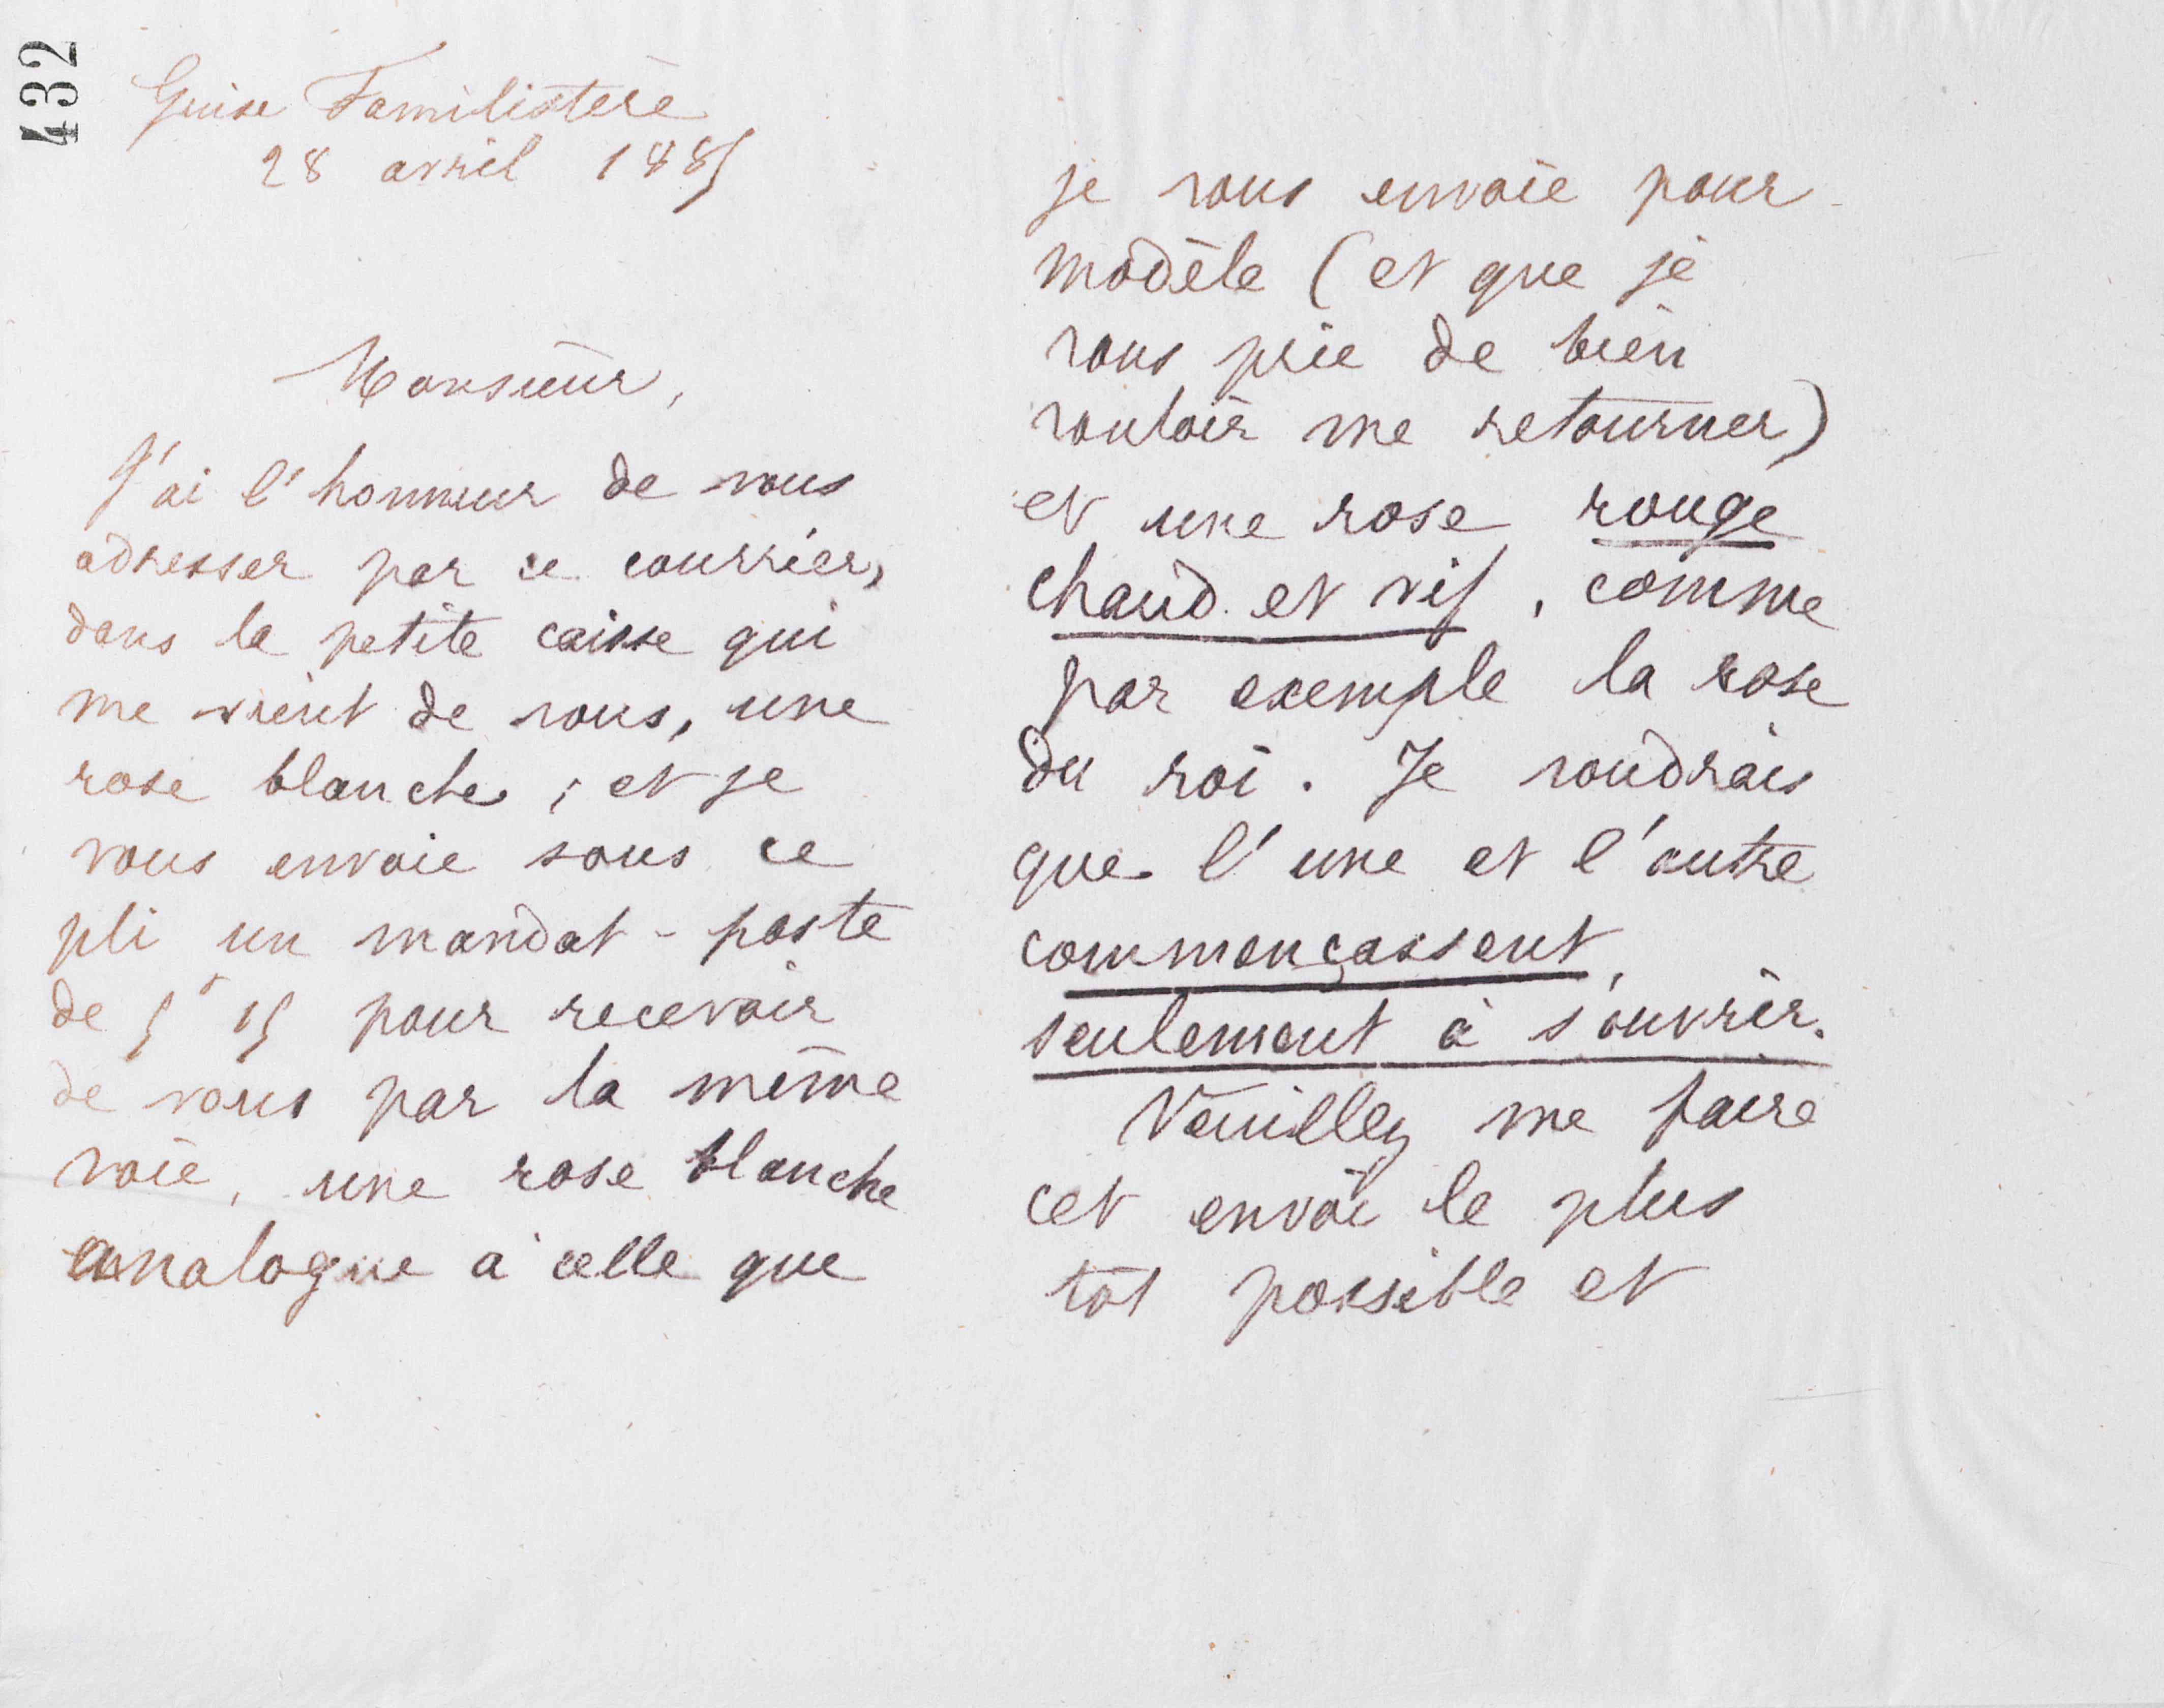 432
Guise Familistère
28 avril 1885
Monsieur,
J'ai l'honneur de vous
adresser par ce courrier,
dans la petite caisse qui
me vient de vous, une
rose blanche ; et je
vous envoie sous ce
pli un mandat-poste
de 5f 15 pour recevoir
de vous par la même
voie, une rose blanche
analogue à celle que
je vous envoie pour
modèle (et que je
vous prie de bien
vouloir me retourner)
et une rose rouge
chaud et vif, comme
par exemple la rose
du roi. Je voudrais
que l'une et l'autre
commençassent
seulement à s'ouvrir.
Veuillez me faire
cet envoi le plus
tôt possible et